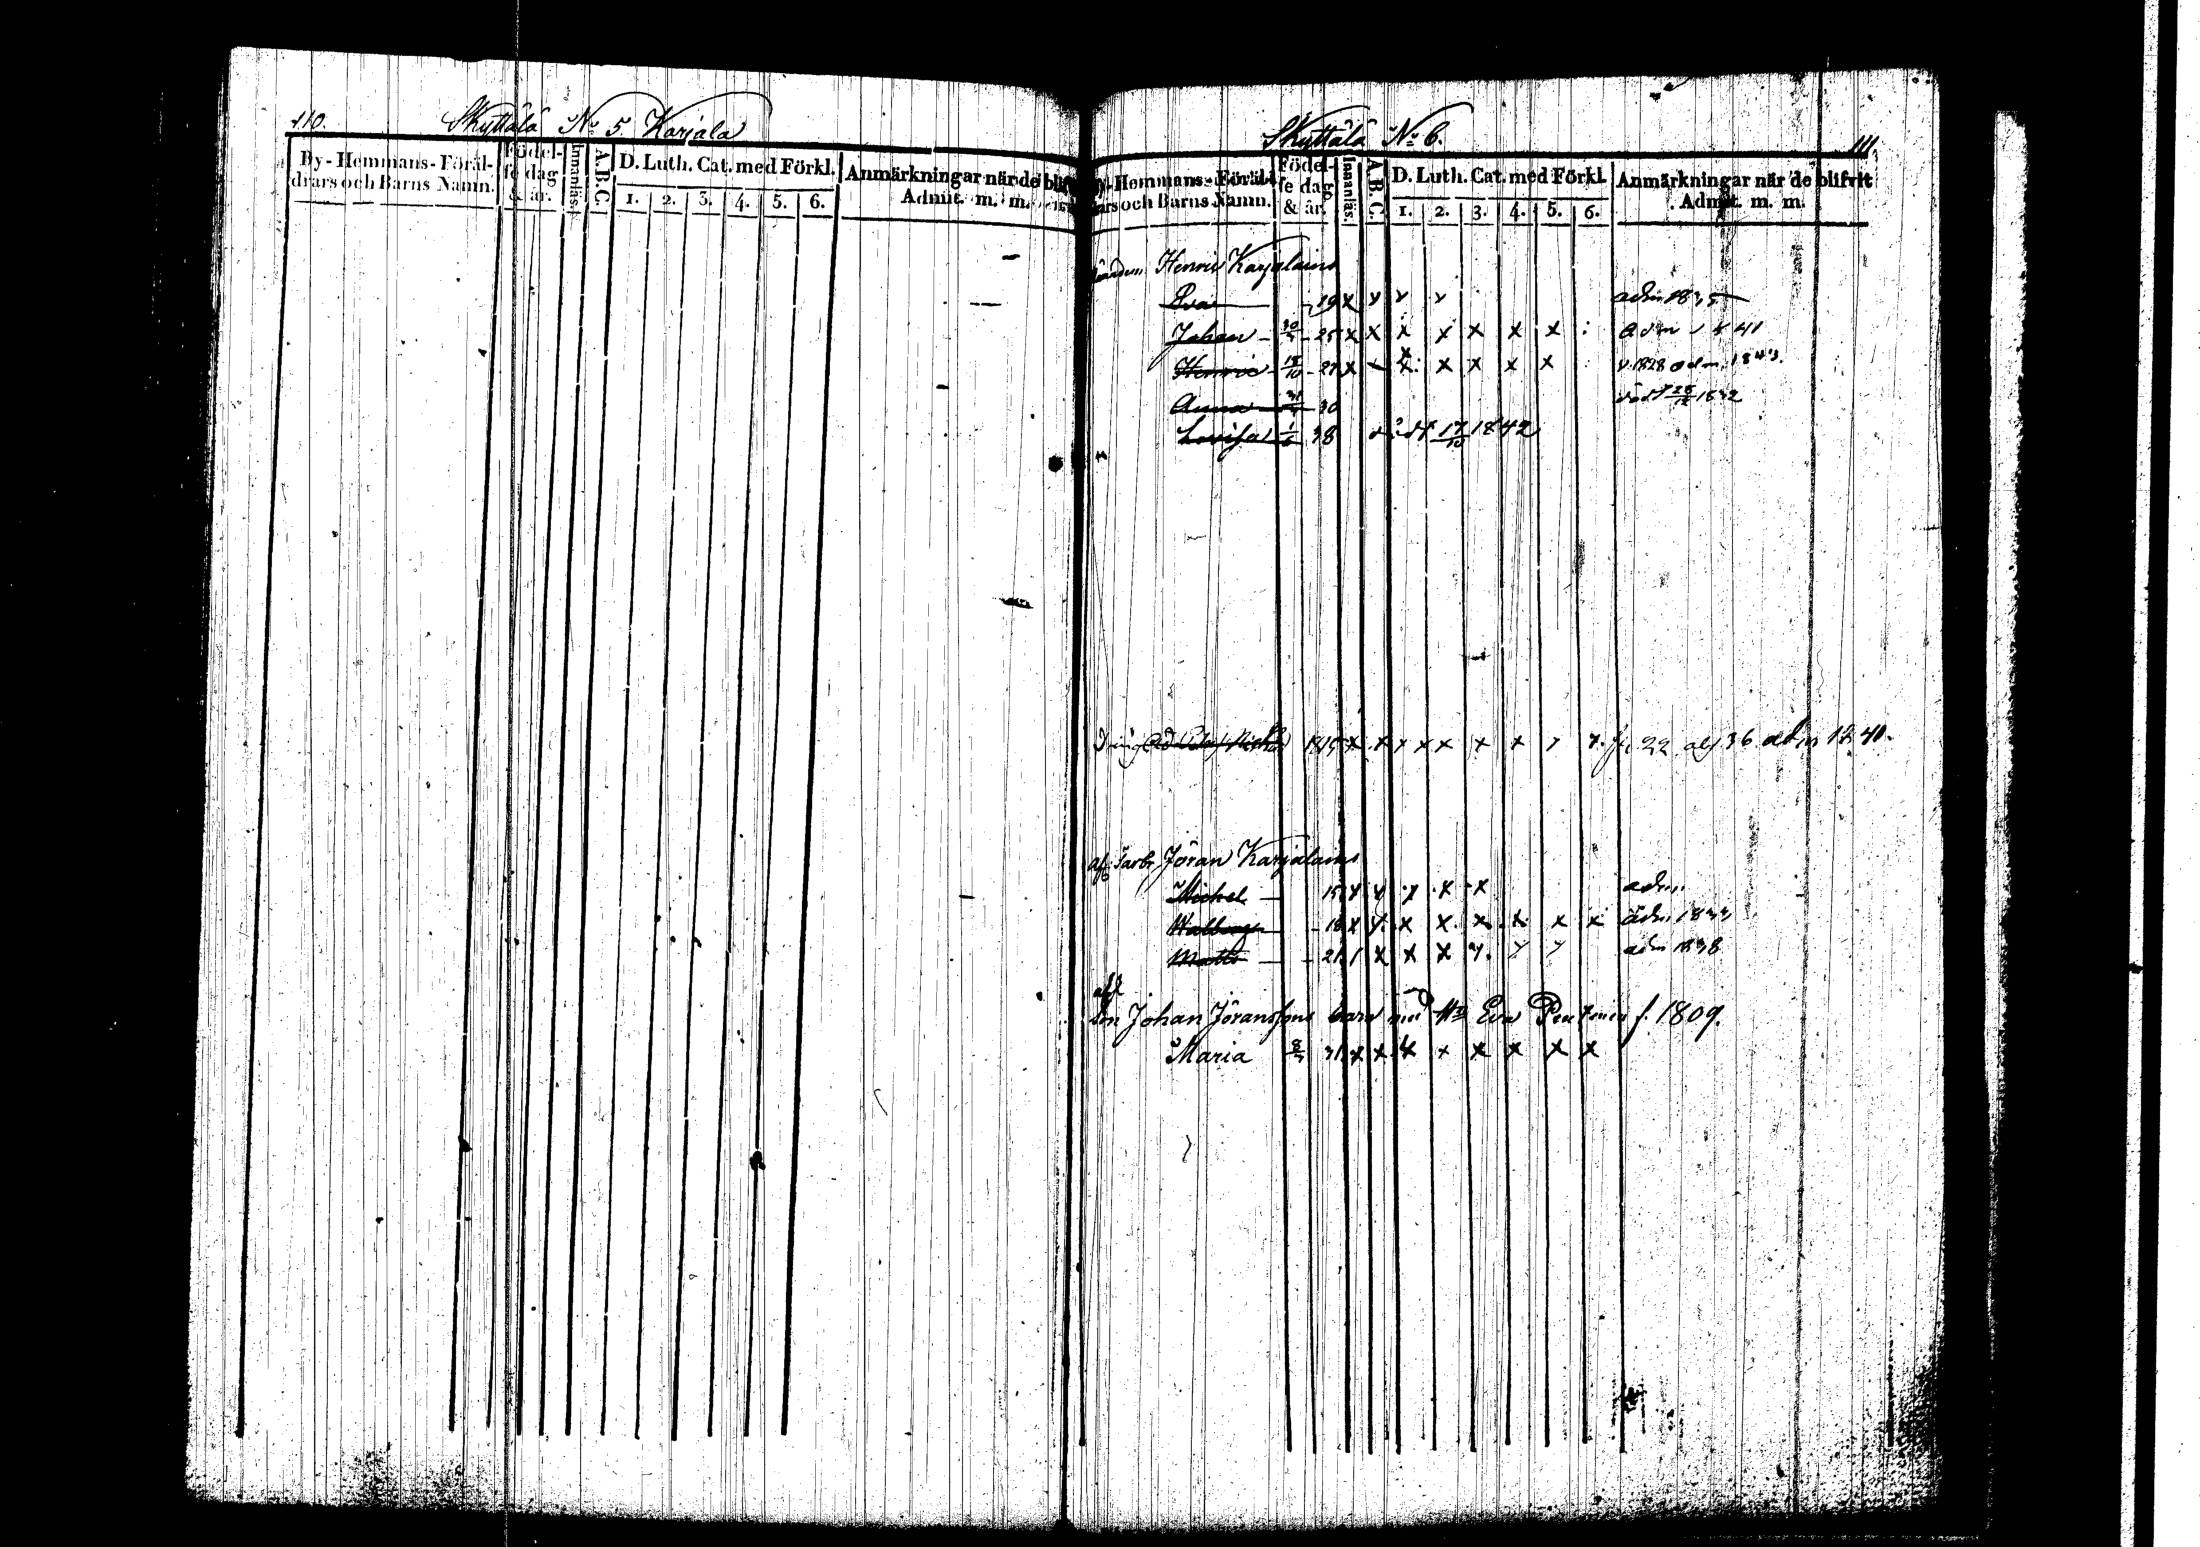 110.
Skyttälä No 5 Karjala
By-Hemmans-Föräl-
drars och Barns Namn.
Födel-
se dag
& år.
Innanläs.
A.B.C.
D. Luth. Cat. med Förkl.
1. 2. 3. 4. 5. 6.
Anmärkningar när de blif
Admit. m. m.
Skyttälä No 6.
111.
By-Hemmans-Föräl-
drars och Barns Namn.
Födel-
se dag
& år.
Innanläs.
A.B.C.
D. Luth. Cat. med Förkl.
1. 2. 3. 4. 5. 6.
Anmärkningar när de blifvit
Admit. m. m.
Henric Karjalains
Eva - 19 x x x x adm 1835
Johan - 30 - 25 x x x x x x x adm 1841
Henric 18/10 - 27 x x x x x x adm. 1843.
Anna 30 död 28/12 1832
Lovisa 38 död 17/10 1842
Dräng 1815 x x x x x x x x x. 22 36 adm 1840.
Jöran Karjalains
Michel - 15 x x x x x adm.
Walborg - 18 x x x x x x x x adm 1833
Matts - 21 x x x x x x adm 1838
Son Johan Jöranssons barn med Eva f. 1809.
Maria 31 x x x x x x x x